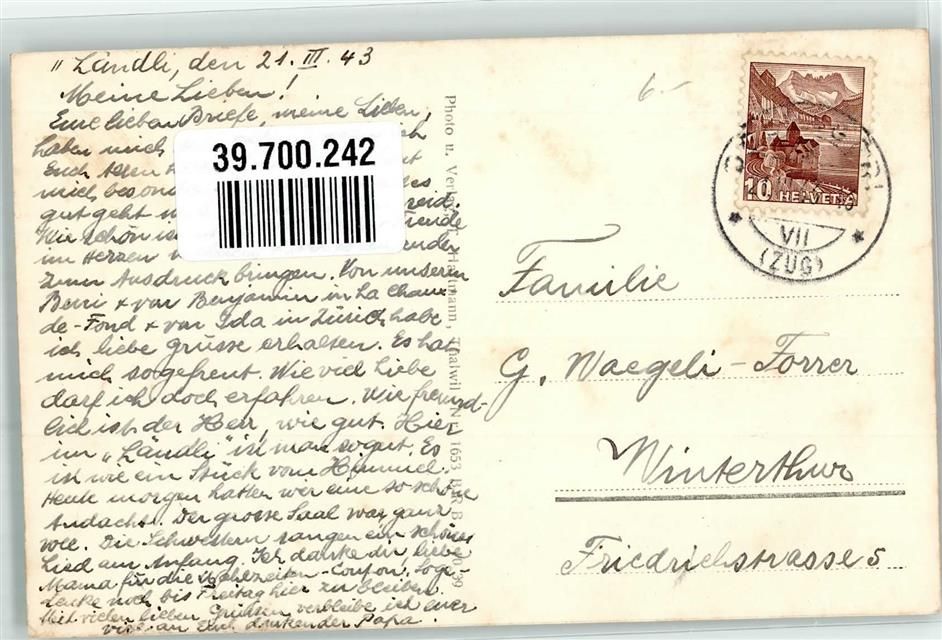 "Ländli, den 21. III. 43
Meine Lieben!
Eure lieben Briefe, meine Lieben,
haben mich
Euch
mich beson
gut geht
Wie schön is
im Herzen
zum Ausdruck bringen. Von unseren
Berri + von Benjamin in La Chaux-
de-Fond + von Ida in Zürich habe
ich liebe Grüsse erhalten. Es hat
mich so gefreut. Wie viel Liebe
darf ich doch erfahren. Wie freund-
lich ist der Herr, wie gut. Hier
im "Ländli" ist man so gut. Es
ist wie ein Stück vom Himmel.
Heute morgen hatten wir eine so schöne
Andacht. Der grosse Saal war ganz
voll. Die Schwestern sangen ein schönes
Lied am Anfang. Ich danke dir liebe
Mama für die Mahlzeiten-Coupon. Ich ge-
denke noch bis Freitag hier zu bleiben.
Mit vielen lieben Grüssen verbleibe ich euer
viel an Euch denkender Papa.
39.700.242
Photo u. Verlag Hartmann, Thalwil Nr. 1653
39
6.-
10 HELVETIA
VII
(ZUG)
Familie
G. Waegeli-Forrer
Winterthur
Friedrichstrasse 5